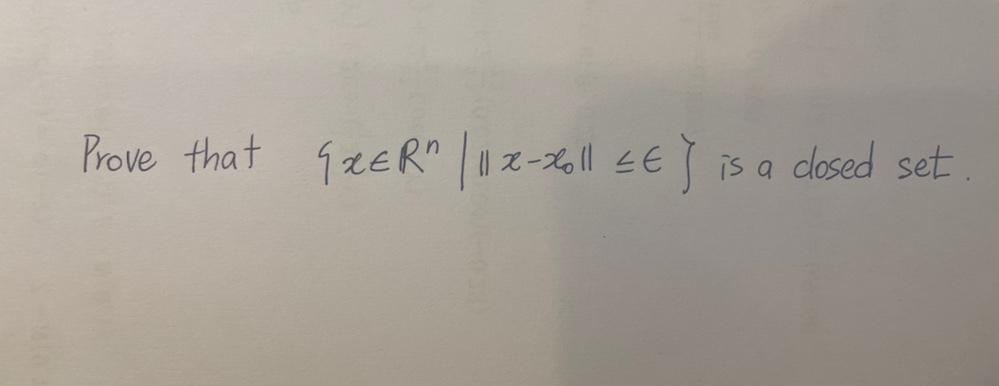 Prove that {x∈Rⁿ | ||x-x₀|| ≤ ∈ } is a closed set.